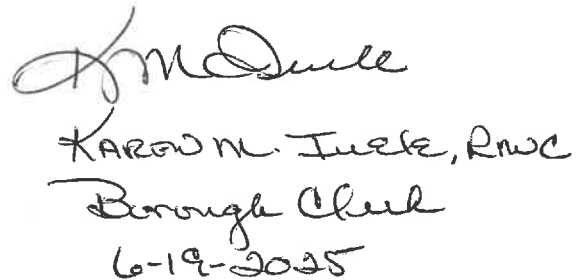 Karen M. Iuele, RMC
Borough Clerk
6-19-2025